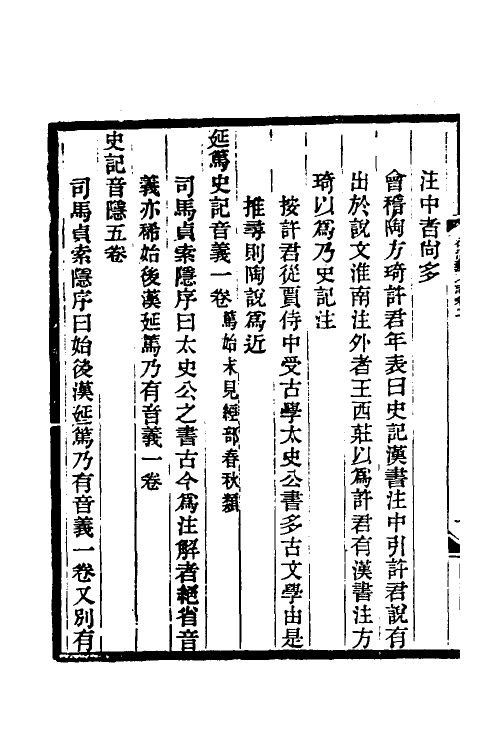 注中者尚多
會稽陶方琦許君年表曰史記漢書注中引許君說有
出於說文淮南注外者王西莊以爲許君有漢書注方
琦以爲乃史記注
按許君從賈侍中受古學太史公書多古文學由是
推尋則陶說爲近
延篤史記音義一卷 篤始末見經部春秋類
司馬貞索隱序曰太史公之書古今爲注解者絕省音
義亦稀始後漢延篤乃有音義一卷
史記音隱五卷
司馬貞索隱序曰始後漢延篤乃有音義一卷又別有